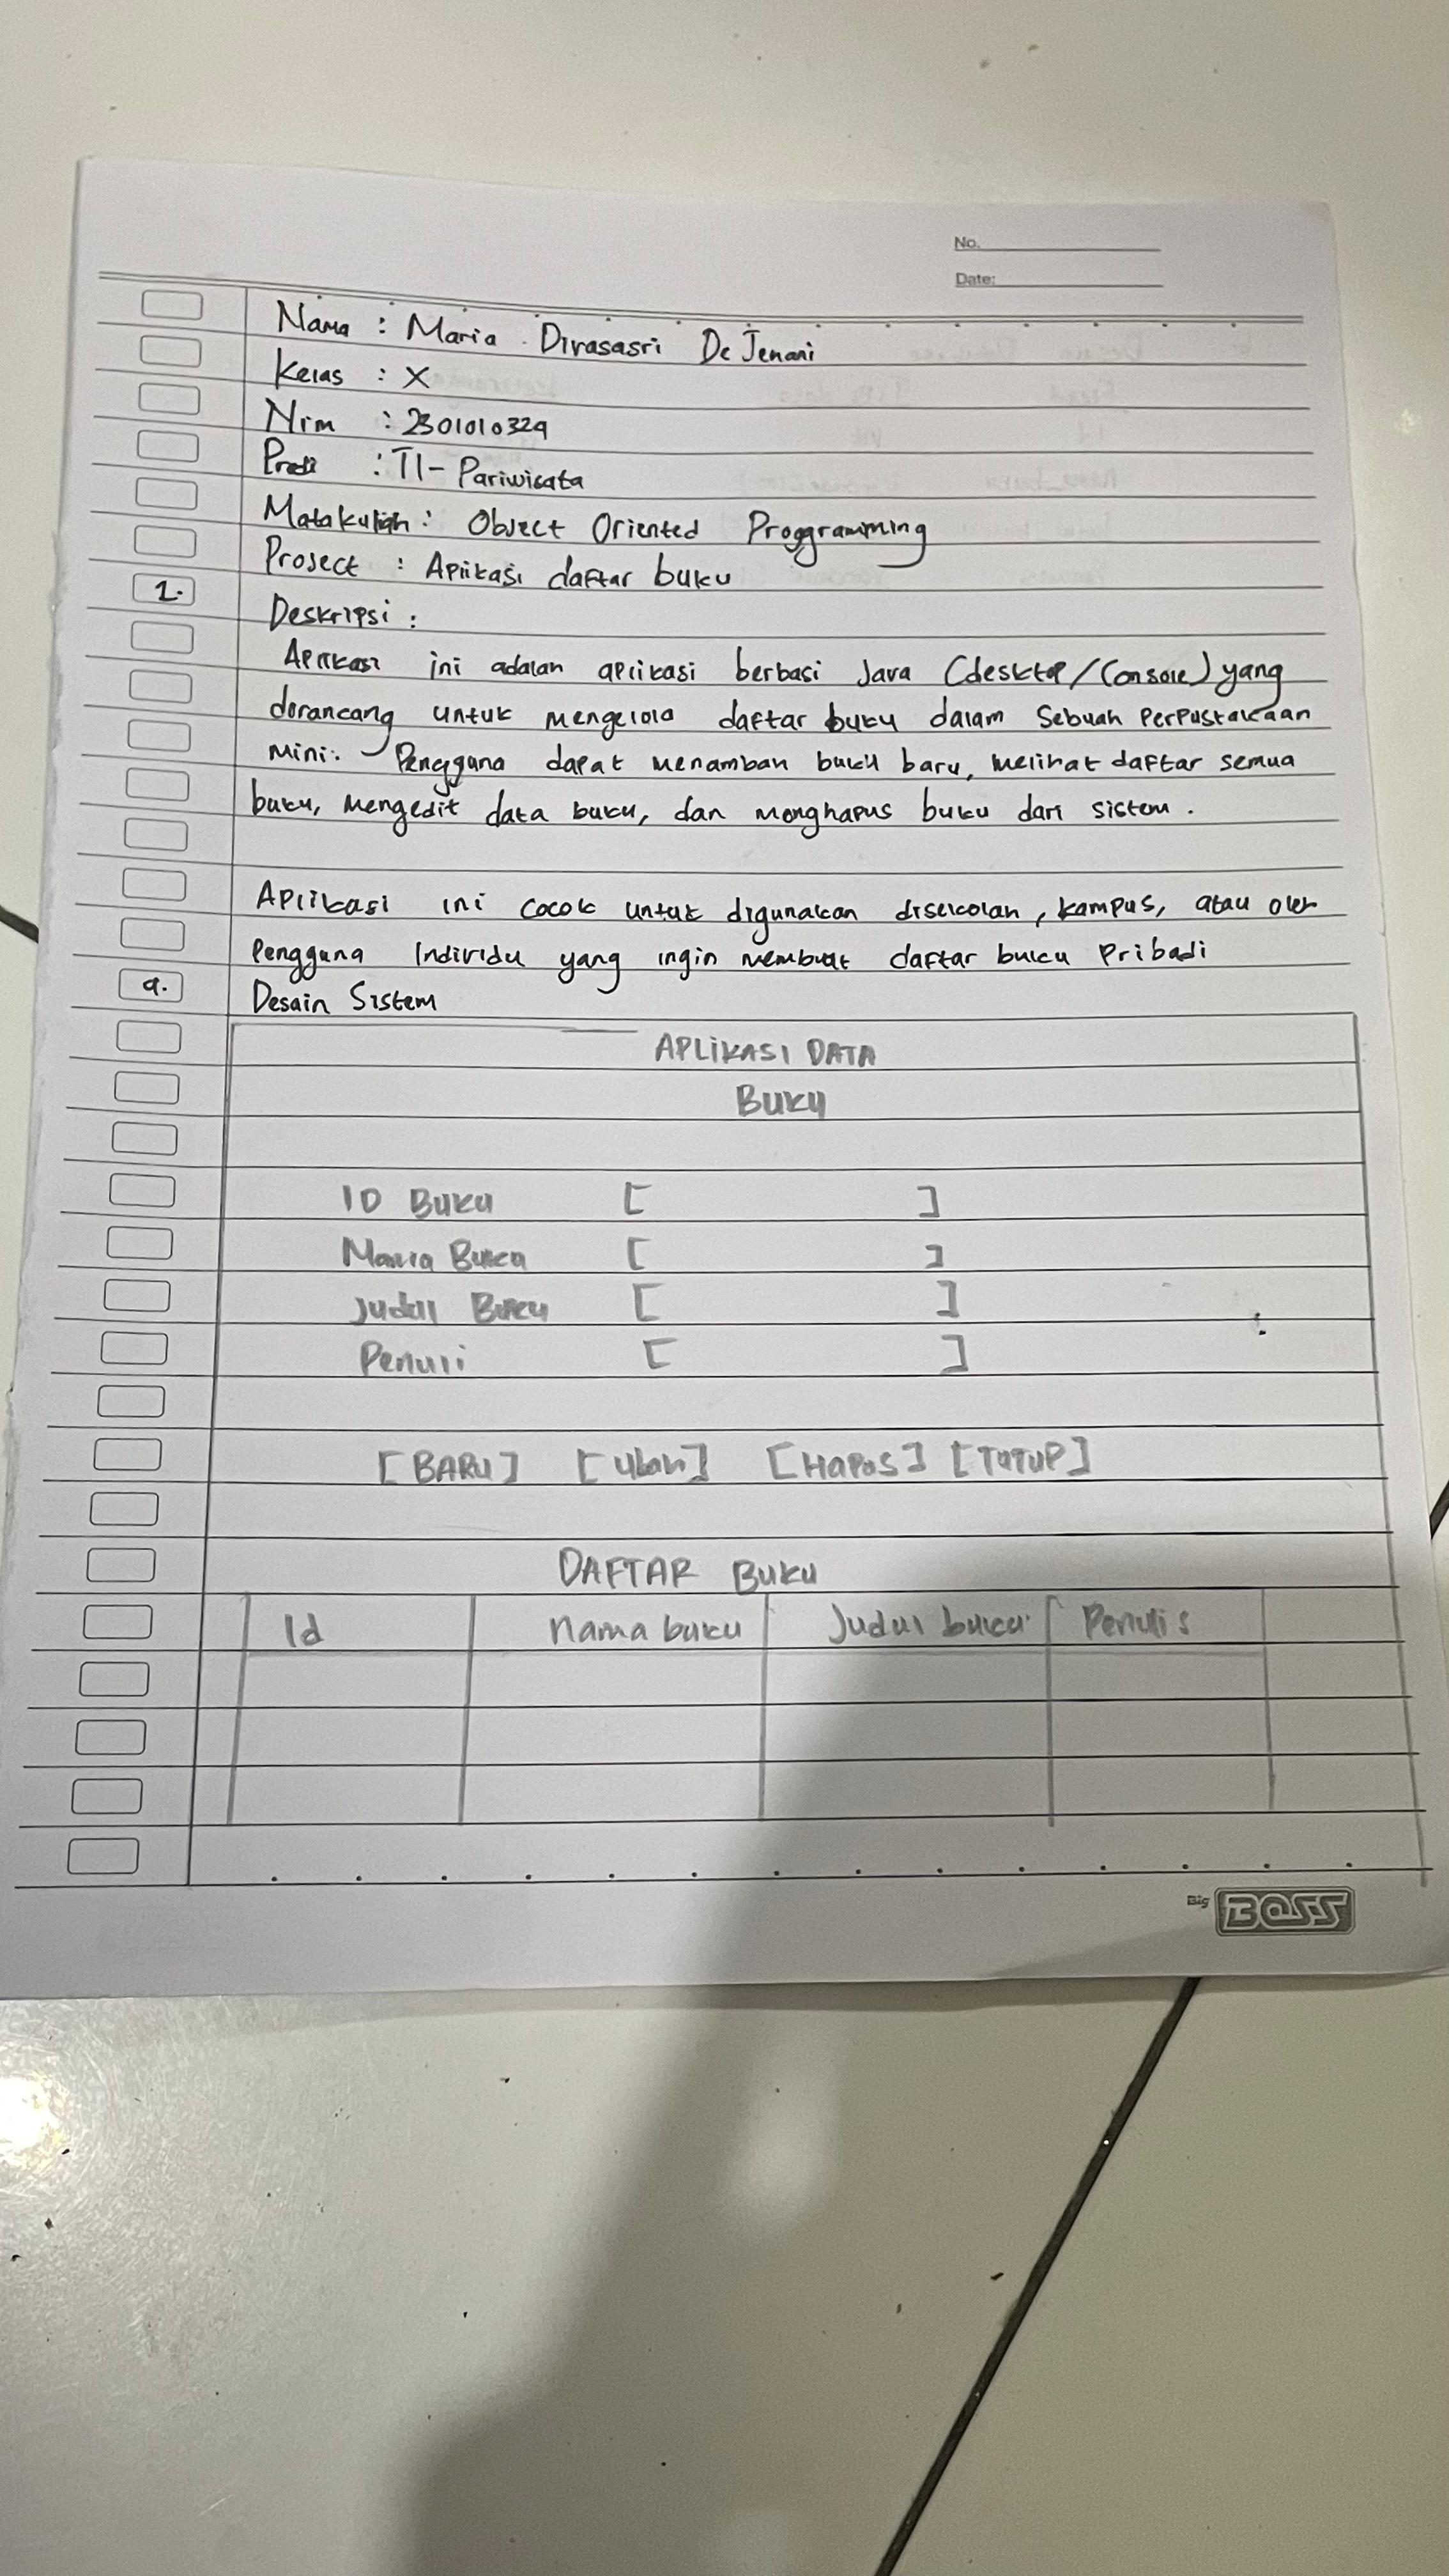 No.
Date:
Nama : Maria Divasasri De Jenani
Kelas : X
Nim : 2301010329
Prodi : TI - Pariwisata
Matakuliah : Object Oriented Proggramming
Prosect : Aplikasi daftar buku
1.
Deskripsi :
Aplikasi ini adalah aplikasi berbasi Java (desktop/Console) yang
dorancang untuk mengelola daftar buku dalam sebuah perpustakaan
mini. Pengguna dapat menambah buku baru, melihat daftar semua
buku, mengedit data buku, dan menghapus buku dari sistem.
Aplikasi ini cocok untuk digunakan disekolah, kampus, atau oleh
Pengguna Individu yang ingin membuat daftar buku Pribadi
a. Desain Sistem
APLIKASI DATA
BUKU
ID BUKU [ ]
Buku [ ]
Judul Buku [ ]
Penuli [ ]
[BARU] [Ubah] [Hapus] [TUTUP]
DAFTAR BUKU
Id nama buku Judul buku Penulis
Big BOSS